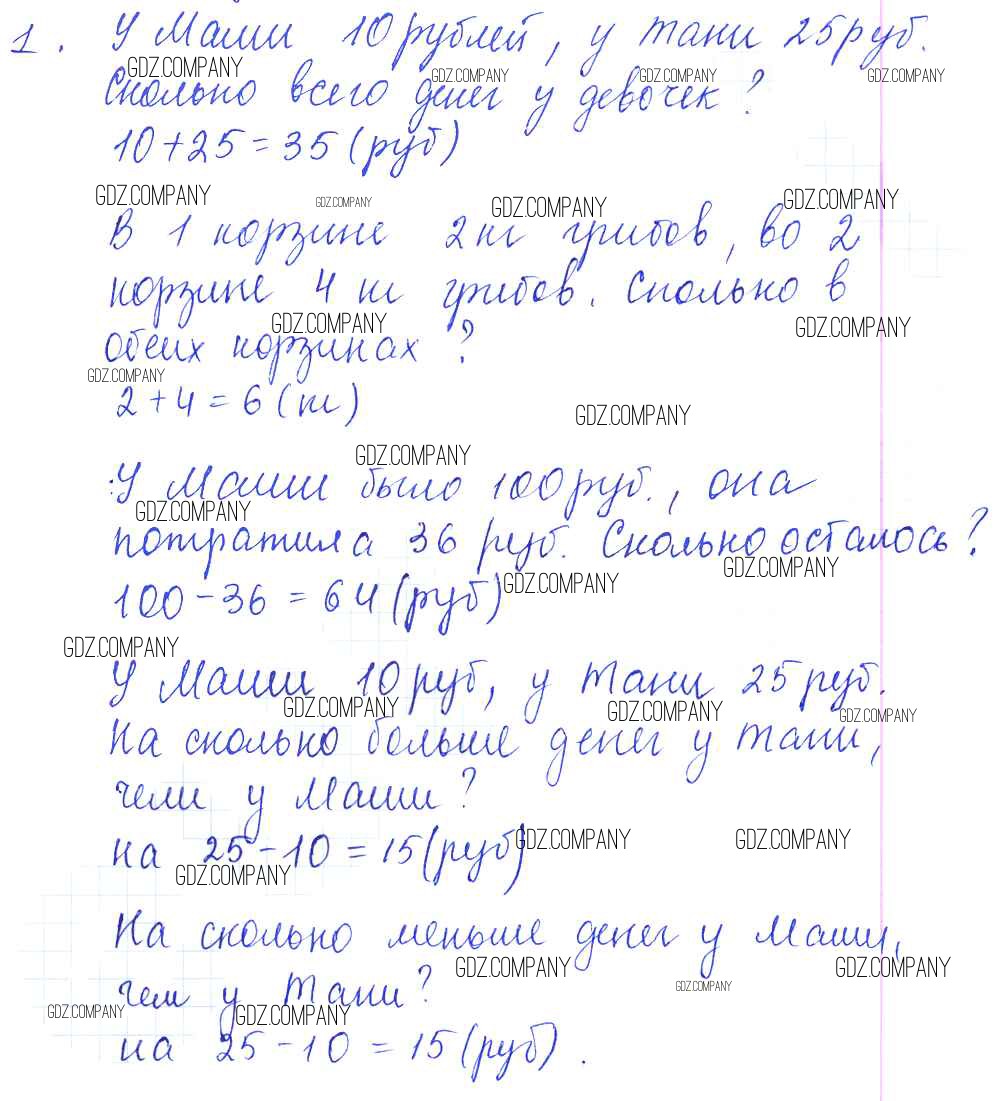 1. У Маши 10 рублей, у Тани 25 руб.
GDZ.COMPANY GDZ.COMPANY GDZ.COMPANY GDZ.COMPANY
Сколько всего денег у девочек?
10 + 25 = 35 (руб)
GDZ.COMPANY GDZ.COMPANY GDZ.COMPANY GDZ.COMPANY
В 1 корзине 2 кг грибов, во 2
корзине 4 кг грибов. Сколько в
GDZ.COMPANY GDZ.COMPANY
обеих корзинах?
GDZ.COMPANY
2 + 4 = 6 (кг)
GDZ.COMPANY
GDZ.COMPANY
У Маши было 100 руб., она
GDZ.COMPANY
потратила 36 руб. Сколько осталось?
GDZ.COMPANY GDZ.COMPANY
100 - 36 = 64 (руб)
GDZ.COMPANY
У Маши 10 руб, у Тани 25 руб.
GDZ.COMPANY GDZ.COMPANY GDZ.COMPANY
На сколько больше денег у Тани,
чем у Маши?
GDZ.COMPANY GDZ.COMPANY
на 25 - 10 = 15 (руб)
GDZ.COMPANY
На сколько меньше денег у Маши,
GDZ.COMPANY GDZ.COMPANY
чем у Тани?
GDZ.COMPANY GDZ.COMPANY GDZ.COMPANY
на 25 - 10 = 15 (руб).